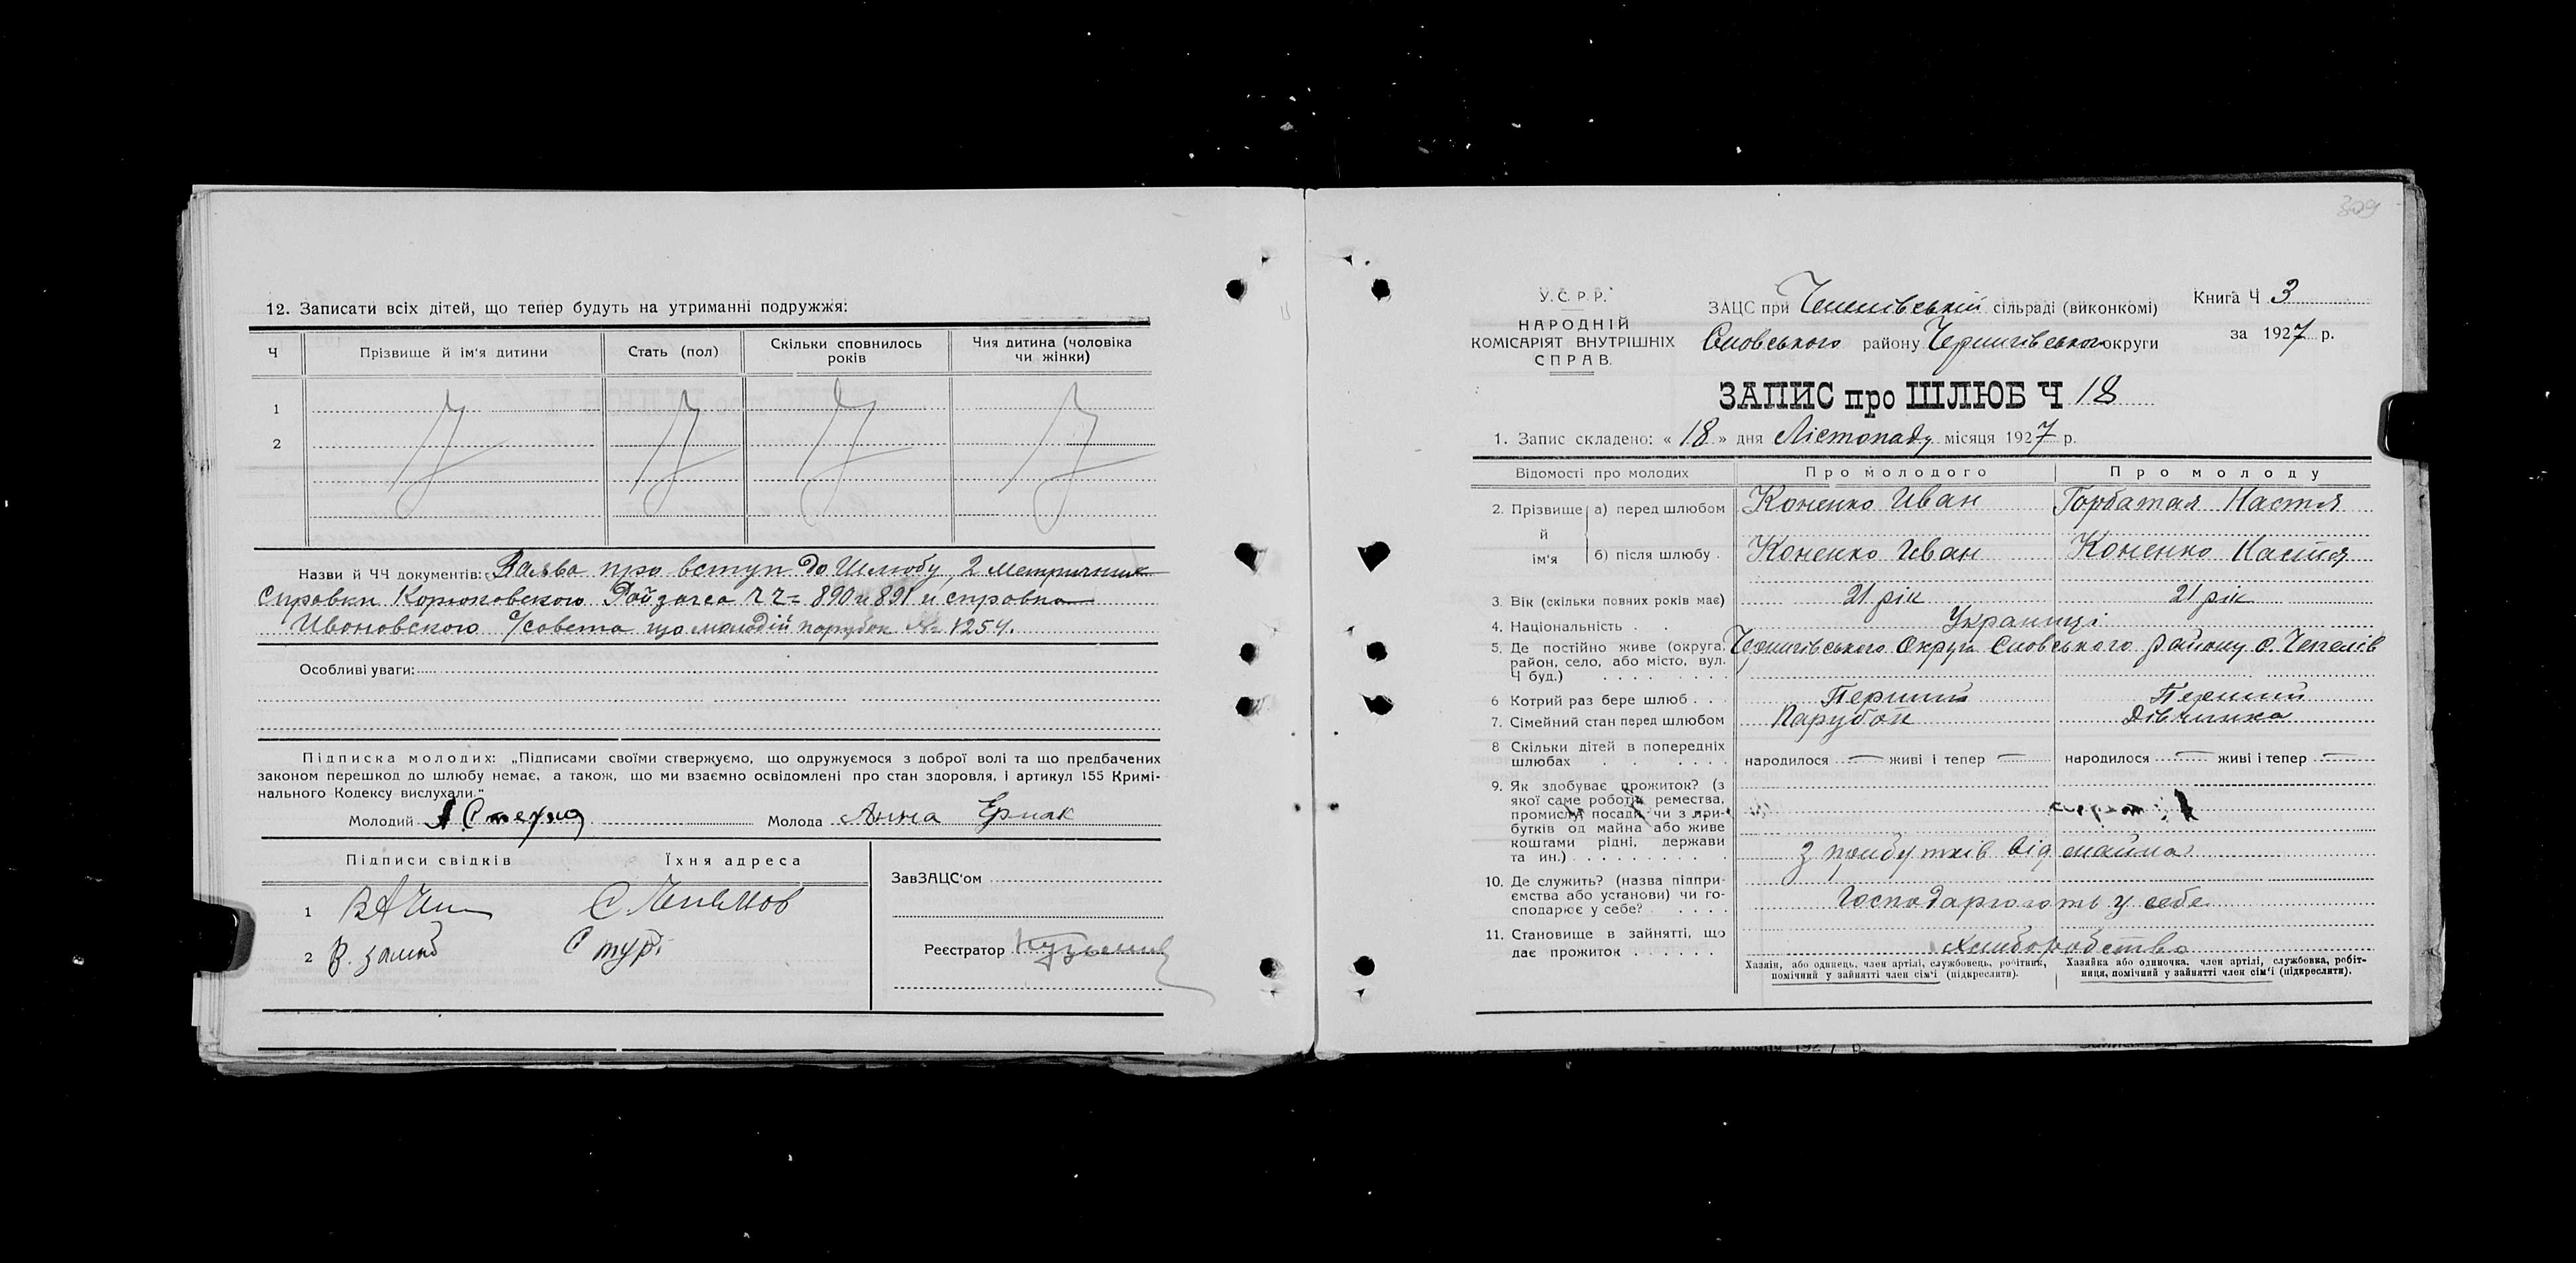 12. Записати всіх дітей, що тепер будуть на утриманні подружжя:
Ч Прізвище й ім'я дитини Стать (пол) Скільки сповнилось років Чия дитина (чоловіка чи жінки)
1
2
Назви й ЧЧ документів: Заява про вступ до Шлюбу, 2 метричних
Справки Корюковского Райзагса 890 и 891 и справка
Ивоновского с/совета що молодій парубок № 1254.
Особливі уваги:
Підписка молодих: „Підписами своїми стверджуємо, що одружуємося з доброї волі та що предбачених
законом перешкод до шлюбу немає, а також, що ми взаємно освідомлені про стан здоровля, і артикул 155 Кримі-
нального Кодексу вислухали."
Молодий Молода Анна Ермак
Підписи свідків Їхня адреса
ЗавЗАЦС'ом
1
2
Реєстратор
309
У. С. Р. Р.
НАРОДНІЙ
КОМІСАРІЯТ ВНУТРІШНІХ
СПРАВ.
ЗАЦС при сільраді (виконкомі)
Сновського району Чернигівського округи
Книга Ч 3
за 1927 р.
ЗАПИС про ШЛЮБ Ч 18
1. Запис складено: « 18 » дня Лістопаду місяця 1927 р.
Відомості про молодих Про молодого Про молоду
2. Прізвище й ім'я а) перед шлюбом Коненко Иван Горбатая Настя
б) після шлюбу Коненко Иван Коненко Настя
3. Вік (скільки повних років має) 21 рік 21 рік
4. Національність Українці
5. Де постійно живе (округа, Чернигівського Округа Сновського району с. Чепелів
район, село, або місто, вул.
Ч буд.)
6 Котрий раз бере шлюб Перший Перший
7. Сімейний стан перед шлюбом Парубок Дівчинка
8 Скільки дітей в попередніх
шлюбах народилося — живі і тепер — народилося — живі і тепер —
9. Як здобуває прожиток? (з
якої саме роботи, ремества,
промислу, посади, чи з при-
бутків од майна або живе
коштами рідні, держави
та ин.) З прибутків від майна
10. Де служить? (назва підпри-
ємства або установи) чи го-
сподарює у себе? Господарюють у себе
11. Становище в зайнятті, що
дає прожиток Хліборобство
Хазяін, або одинець, член артілі, службовець, робітник, помічний у зайнятті член сім'ї (підкреслити).
Хазяйка або одиночка, член артілі, службовка, робіт-ниця, помічний у зайнятті член сім'ї (підкреслити).